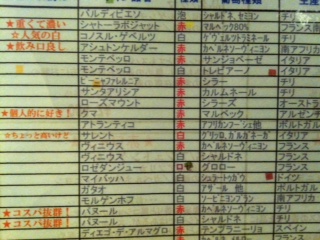 バルディビエソ 泡 シャルドネ、セミヨン チリ
★重くて濃い シャトーラボジャット 赤 マルベック80% フランス
☆人気の白 コノスル・ゲベルツ 白 ゲヴュルツトラミネール チリ
★飲み口良し アシュトンケルダー 赤 カベルネソーヴィニヨン 南アフリカ
モンテベッロ 赤 サンジョベーゼ イタリア
モンテベッロ 白 トレビアーノ イタリア
赤 シラー チリ
サンタアリシア 赤 カルムネール チリ
ローズマウント 赤 シラーズ オースト
★個人的に好き! クマ 赤 マルベック アルゼン
アトランティコ 赤 ポルト
☆ちょっと高いけど サレント 白 イタリア
ヴィニウス 赤 カベルネソーヴィニヨン フランス
ヴィニウス 白 シャルドネ フランス
ロゼダンジュー グロロー フランス
マイバッハ 白 ドイツ
ガタオ 白 アザール 他 ポルトガル
モルゲンホフ 白 ソービニヨンブラン 南アフリカ
★コスパ抜群! バヌール 赤 カベルネソーヴィニヨン チリ
☆コスパ抜群! バヌール 白 シャルドネ チリ
ディエゴ・デ・アルマグロ 赤 テンプラニーリョ スペイン